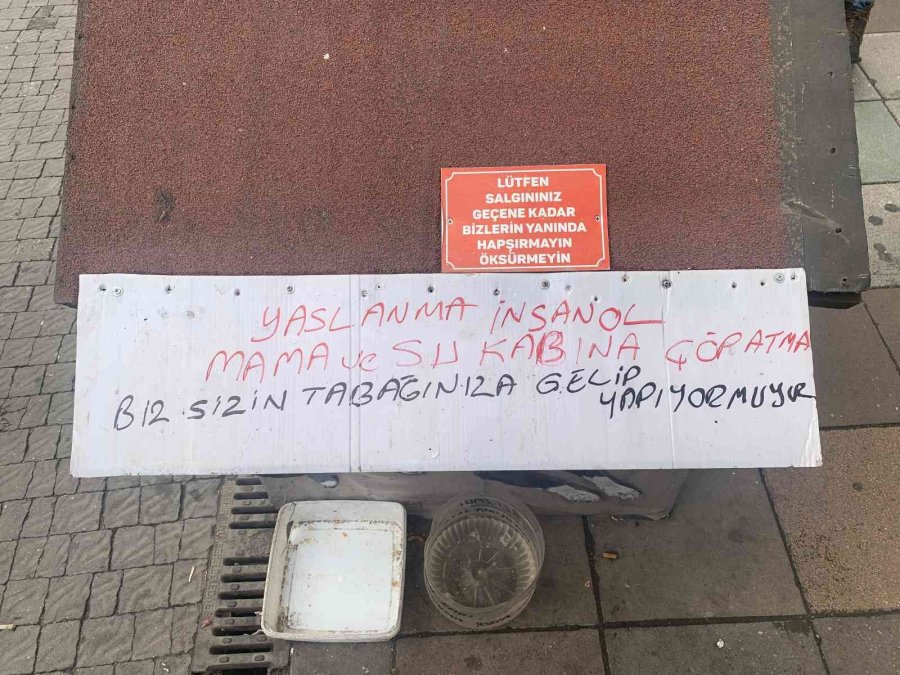 LÜTFEN
SALGININIZ
GEÇENE KADAR
BİZLERİN YANINDA
HAPŞIRMAYIN
ÖKSÜRMEYİN
YASLANMA İNSANOL
MAMA ve SU KABINA ÇÖP ATMA
BİZ SİZİN TABAĞINIZA GELİP
YAPIYORMUYUZ